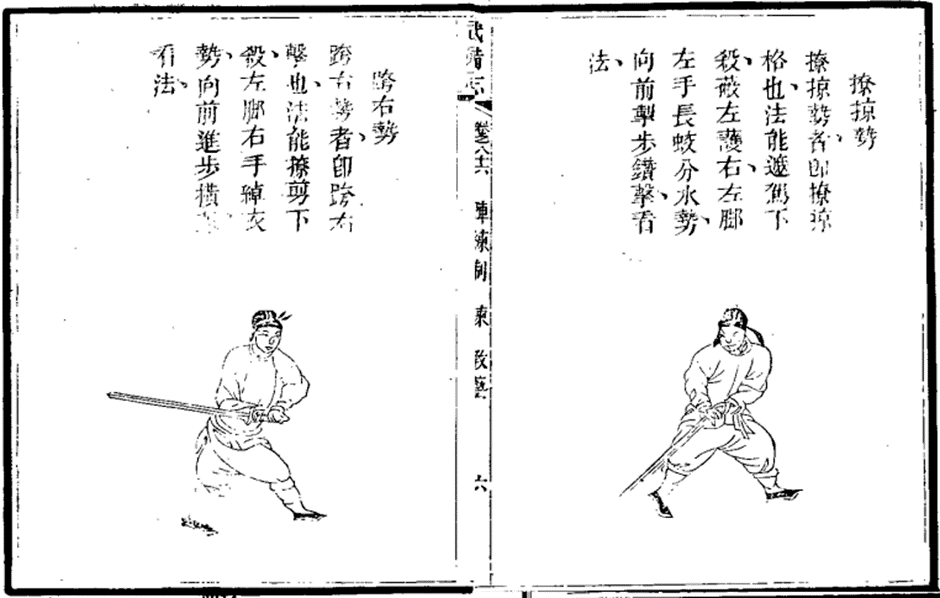 撩掠勢
撩掠勢者、即撩掠
格也、法能遮駕下
殺、蔽左護右、左脚
左手長蛟分水勢、
向前掣步鑽擊、看
法、
武備志
卷八十六
陣練制
練
教藝
六
跨右勢
跨右勢者、即跨右
擊也、法能撩剪下
殺、左脚右手綽衣
勢、向前進步橫
看法、